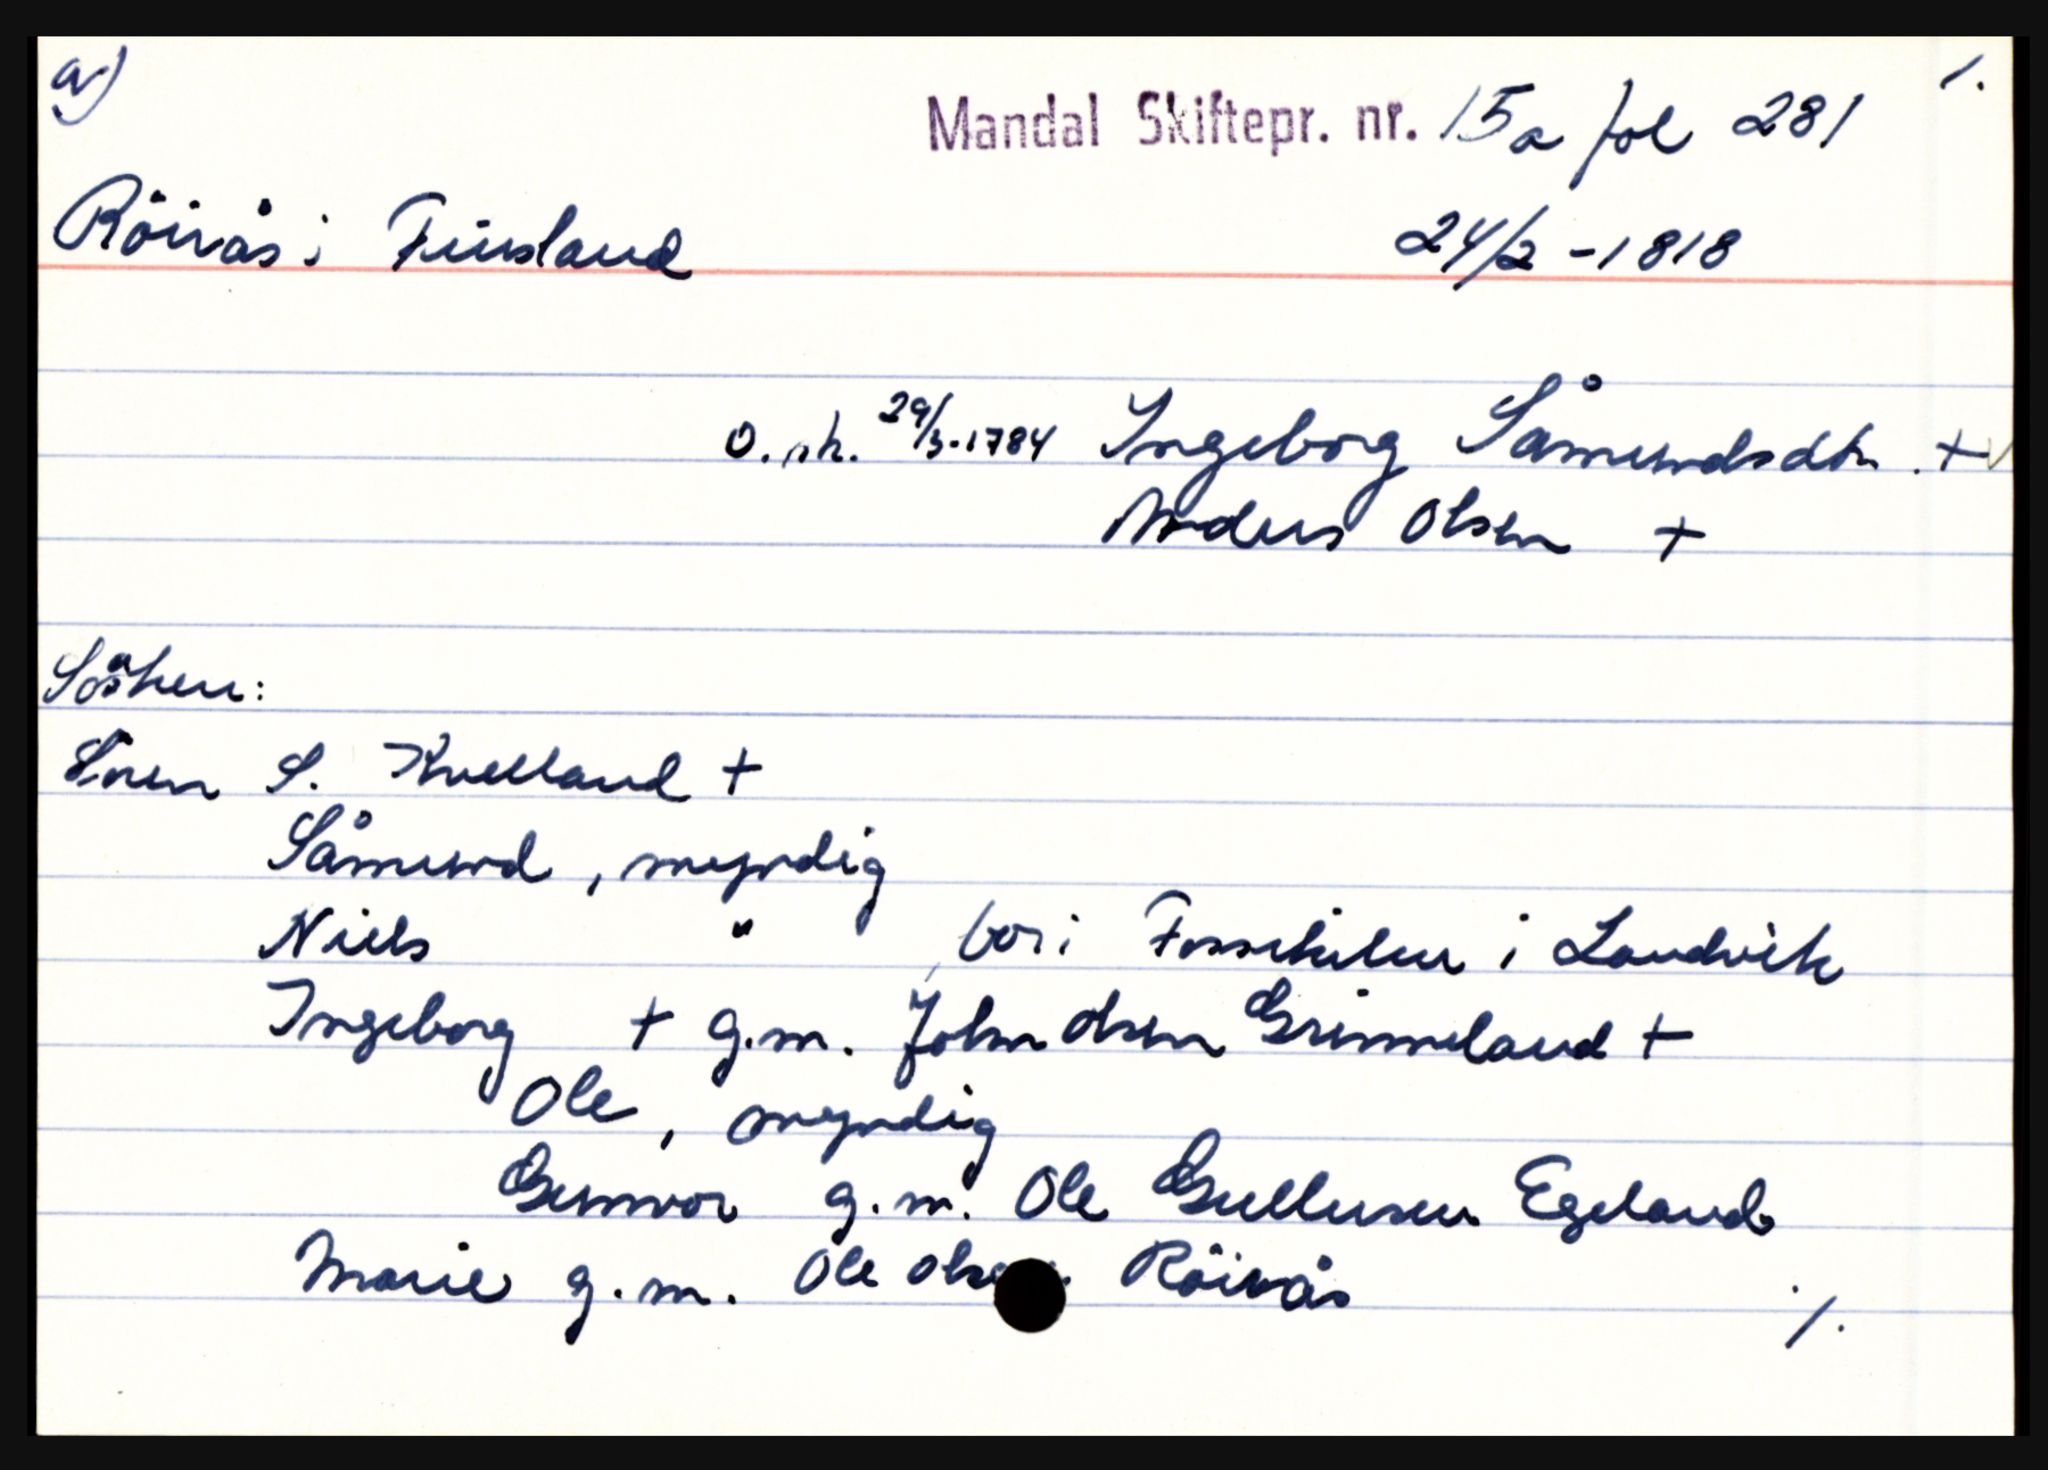 a) 1.
Mandal Skiftepr. nr. 15a fol 281
Röivås i Finsland 24/2 - 1818
o. sk. 29/3-1784 Ingeborg Såmundsdtr. +
Anders Olsen +
Sösken:
Sören S. Kvelland +
Såmund, myndig
Niels " bor i Fossekilen i Landvik
Ingeborg + g.m. John Olsen Grimeland +
Ole, myndig
Gunvor g.m. Ole Gullusen Egeland
Marie g.m. Ole Olsen Röivås
./.